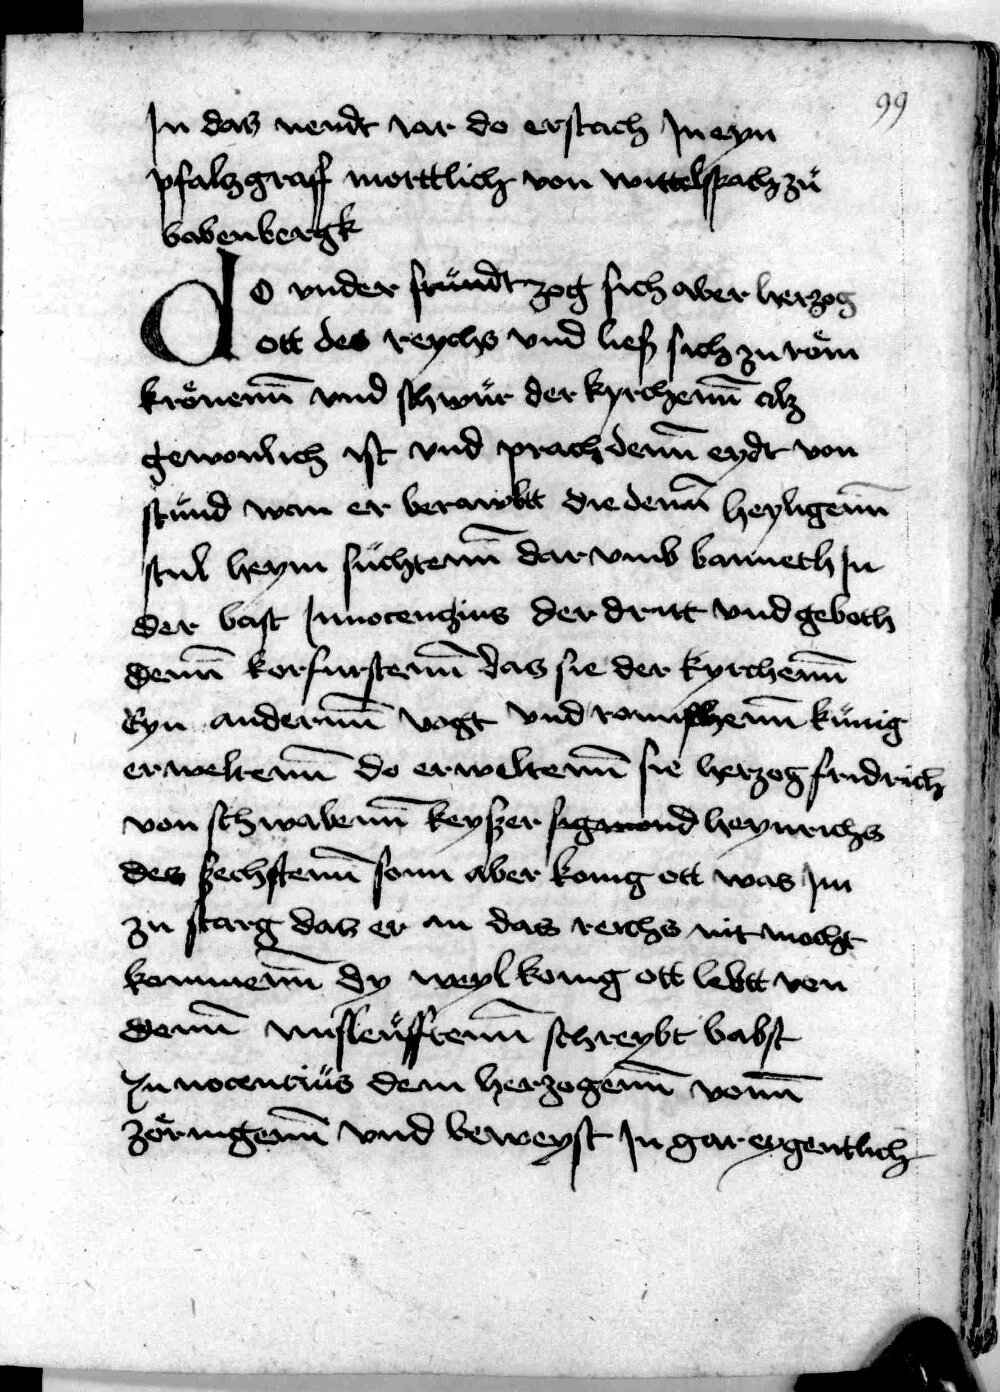 99
In das neudt iar do erstach In eyn
pfaltzgraff morttlich von wittelspach zü
babenbergk
Do vnder stündt zog sich aber herzog
ott des reychs vnd ließ sich zu röm
krönenn̄ vnd schwür der kyrchenn̄ alz
gewonlich ist vnd prach denn̄ eydt von
stünd wan er berawbtt die denn̄ heyligenn̄
stul heym süchtenn̄ dar vmb banneth In
der bast Innocenzius der dritt vnd geboth
denn̄ korfurstenn̄ das sie der kyrchenn̄
Eyn andernn̄ vogt vnd romischenn̄ künig
erweltenn̄ do erweltenn̄ sie herzog fridrich
von schwabenn̄ keyszer sigmond heynrichs
des sechstenn̄ sonn aber konig ott was Im
zu starg das er an das reichs nit mocht
kommenn̄ dy weyl konig ott lebtt von
denn̄ schreybt babst
Innocentiüs dem herzogenn̄ vonn̄
zöringenn̄ vnd beweyst In gar eygentlich